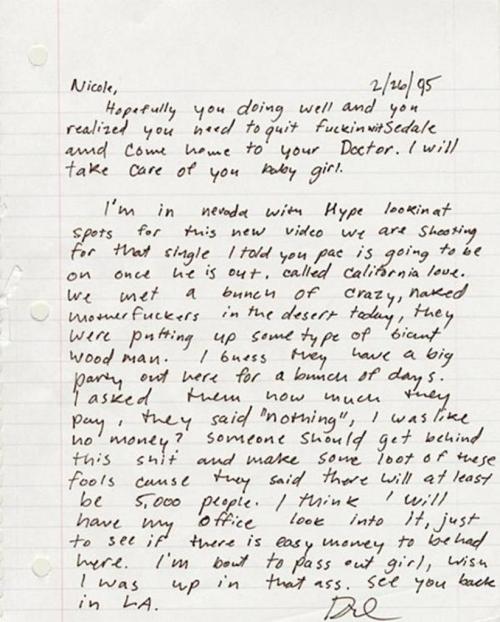 Nicole, 2/26/95
Hopefully you doing well and you
realized you need to quit fuckin wit Sedale
annd come home to your Doctor. I will
take care of you baby girl.
I'm in nevada with Hype lookin at
spots for this new video we are shooting
for that single I told you pac is going to be
on once he is out, called California love.
We met a bunch of crazy, naked
motherfuckers in the desert today, they
were putting up some type of giant
wood man. I guess they have a big
party out here for a bunch of days.
I asked them how much they
pay, they said "nothing", I was like
no money? Someone should get behind
this shit and make some loot of these
fools cause they said there will at least
be 5,000 people. I think I will
have my office look into it, just
to see if there is easy money to be had
here. I'm bout to pass out girl, wish
I was up in that ass. See you back
in LA.
Dre